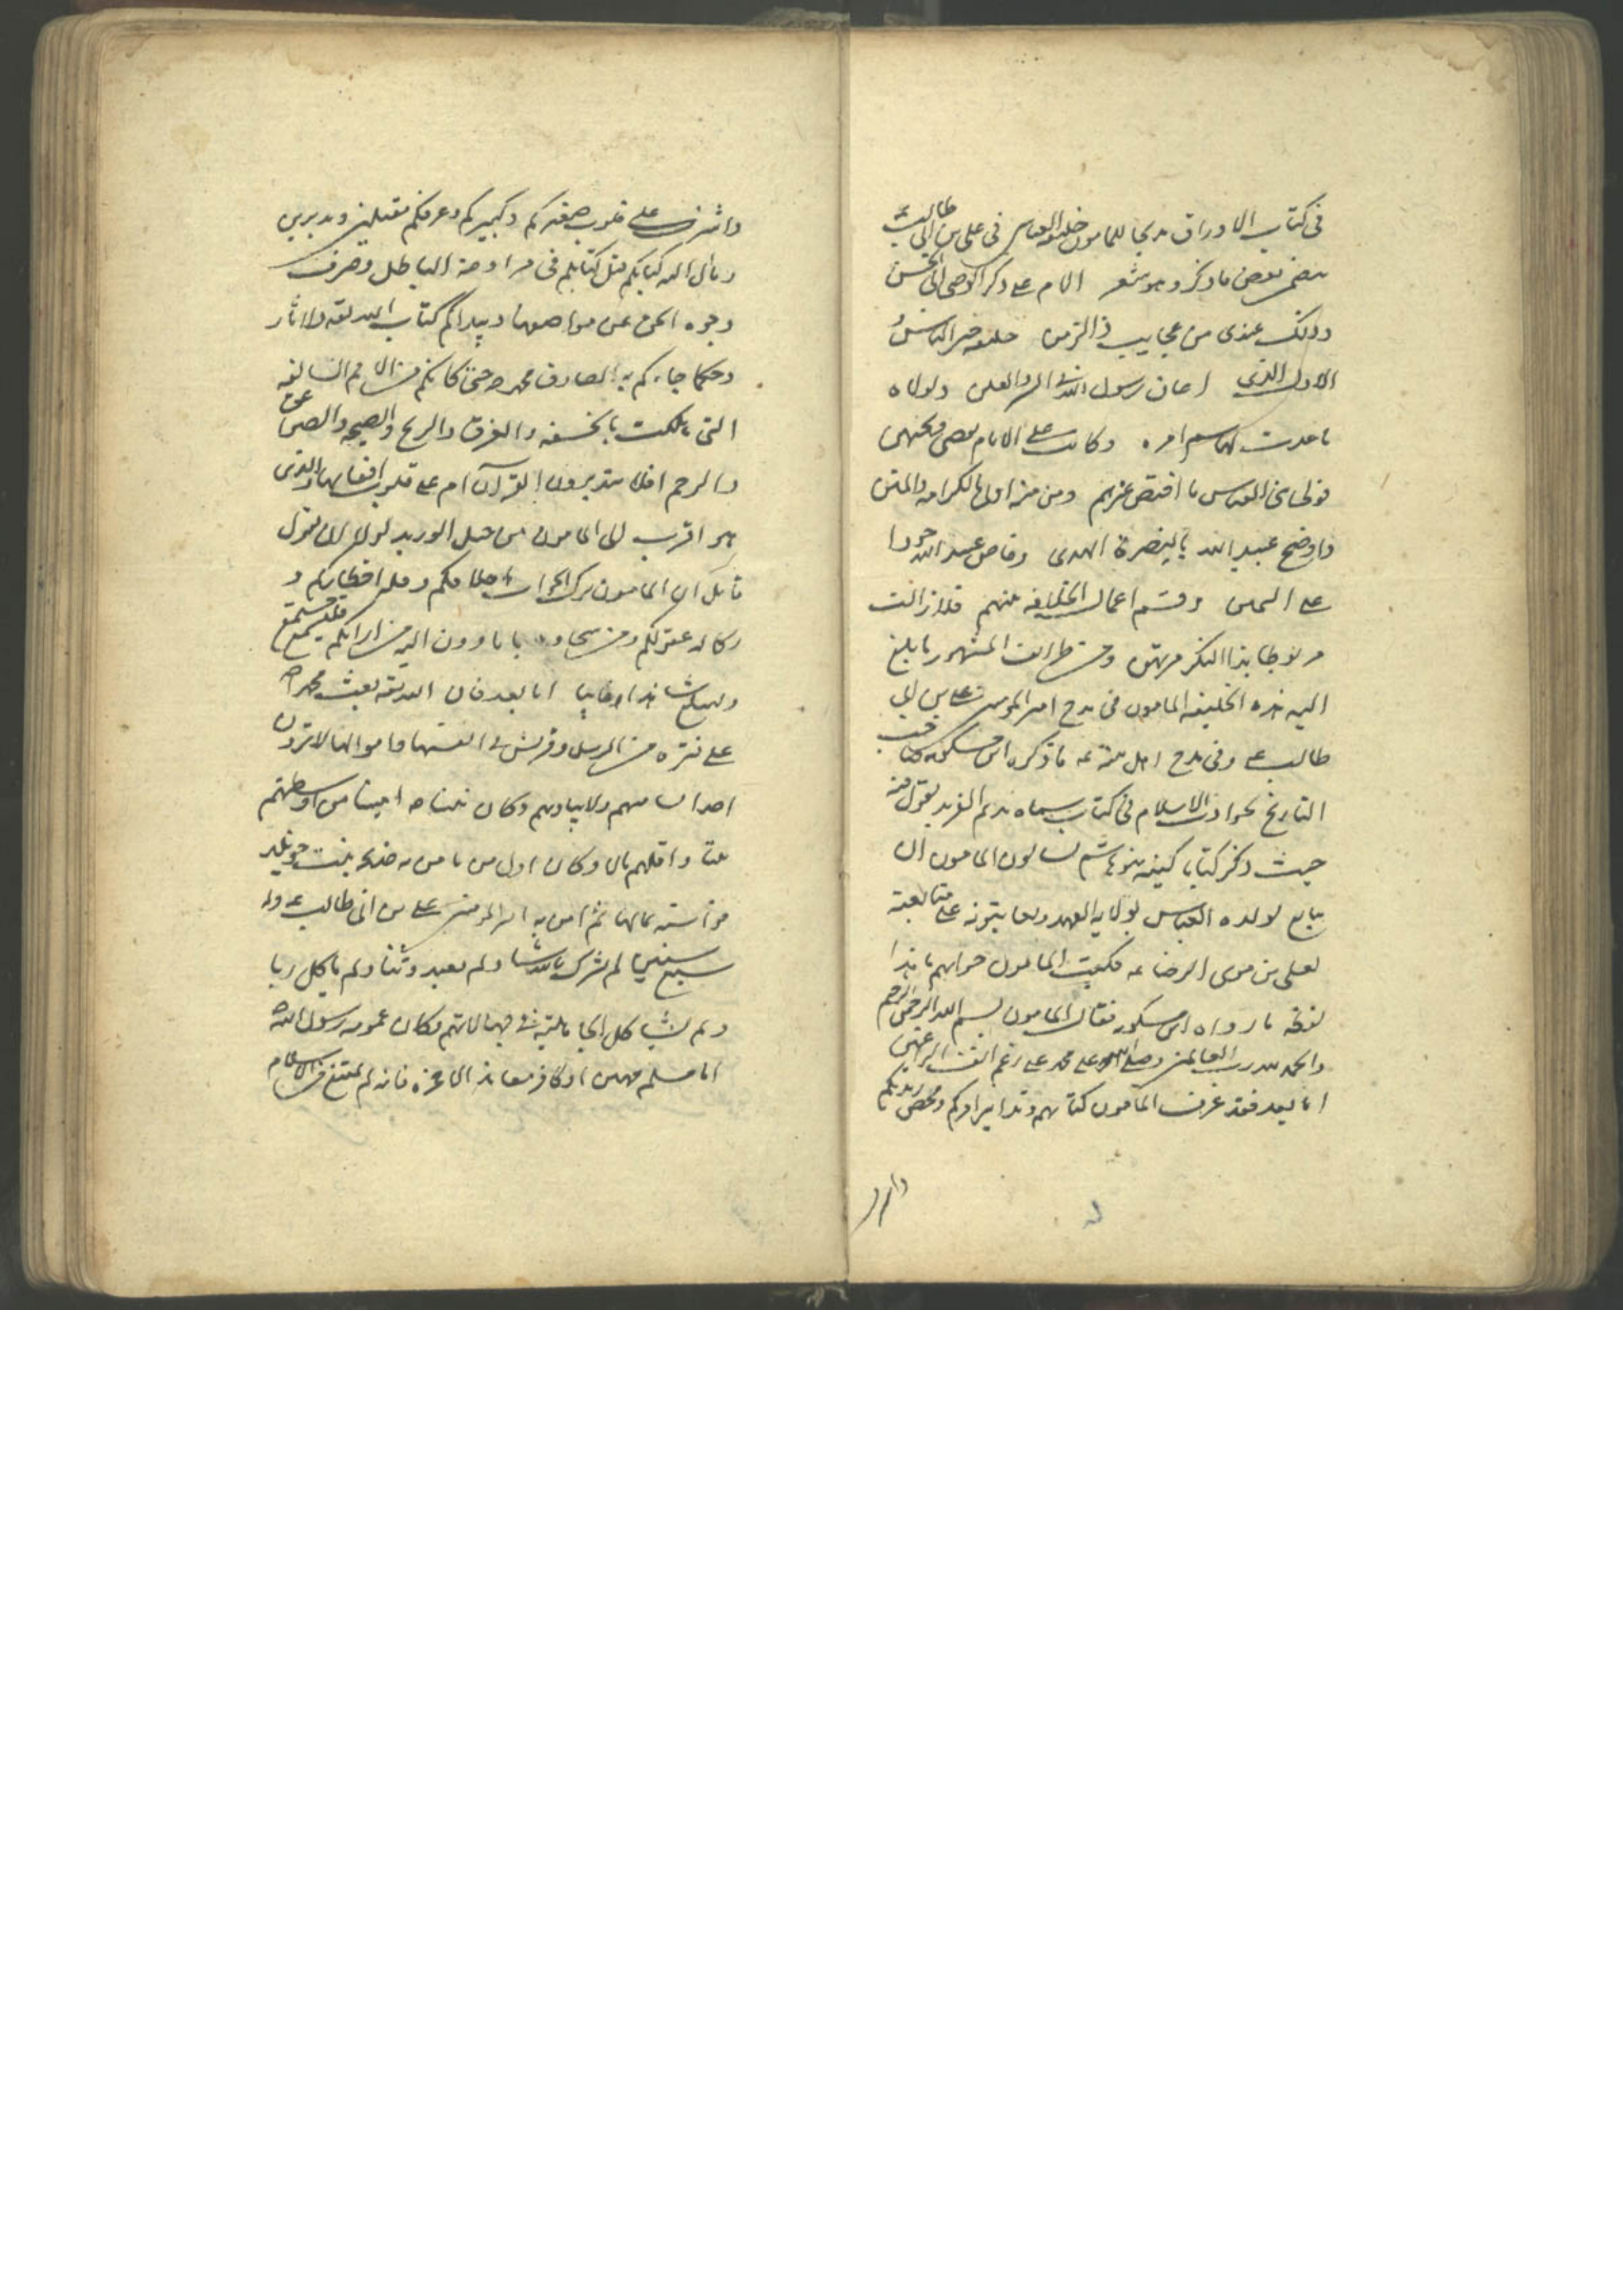 في كتاب الاوراق مديحا للمامون خليفة العباس في علي بن ابي طالب ع
بعض ما ذكر وهو شعر الام على ذكر الوصي ابي الحسن
وذلك عندي من عجايب ذا الزمن خليفة خير الناس
الاول الذي اعان رسول الله في السر والعلن ولولاه
ما عدت لهاشم امره وكانت على الايام تقصى وتمتهن
فولى بني العباس ما اختص غيرهم ومن منه اولى بالكرامه والمنن
فاوضح عبد الله بالبصرة الهدى وفاض عبيد الله جودا
على اليمن وقسم اعمال الخلافه بينهم فلا زالت
مربوطا بهذا الشكر مرتهن ومن طرائف المشهور ما بلغ
اليه هذه الخليفه المامون في مدح امير المومنين علي بن ابي
طالب ع وفي مدح اهل بيته ع ما ذكره ابن مسكويه صاحب
التاريخ بحوادث الاسلام في كتاب سماه نديم الفريد يقول فيه
حيث ذكر كتابا كتبه بنو هاشم يسالون المامون ان
يبايع لولده العباس بولاية العهد ويعاتبونه على متابعته
لعلي بن موسى الرضا ع فكتب المامون جوابهم ما هذا
لفظه ما رواه ابن مسكويه فقال المامون بسم الله الرحمن الرحيم
والحمد لله رب العالمين وصلى الله على محمد على رغم انف الراغمين
اما بعد فقد عرف المامون كتابهم وتدابير امركم ومخض زبدتكم
واشرف
واشرف على قلوب صغيركم وكبيركم وعرفكم مقبلين ومدبرين
وما ال اليه كتابكم قبل كتابكم في مراوضة الباطل وصرف
وجوه الحق عن مواضعها ونبذكم كتاب الله تعه والاثار
وكلما جاءكم به الصادق محمد ص حتى كانكم من الامم السالفه
التي هلكت بالخسفه والغرق والريح والصيحه والصواعق
والرجم افلا يتدبرون القرآن ام على قلوب اقفالها والذي
هو اقرب الى المامون من حبل الوريد لولا ان يقول
قائل ان المامون ترك الجواب عجزا
ركاكه عقولكم ومن سخافه ما ياوون اليه من ارائكم فليستمع مستمع
وليبلغ شاهدا وغايبا اما بعد فان الله تعه بعث محمدا ص
على فتره من الرسل وقريش في انفسها واموالها لا يرون
احدا يساميهم ولا يباريهم وكان نبينا ص امينا من اوسطهم
بيتا واقلهم مالا وكان اول من امن به خديجه بنت خويلد
فواسته بمالها ثم امن به امير المومنين علي بن ابي طالب ع وله
سبع سنين لم يشرك بالله شيئا ولم يعبد وثنا ولم ياكل ربا
ولم يشاكل الجاهلية في جهالاتهم وكان عمومه رسول الله ص
اما مسلم مهين او كافر معاند الا حمزه فانه لم يمتنع من الاسلام